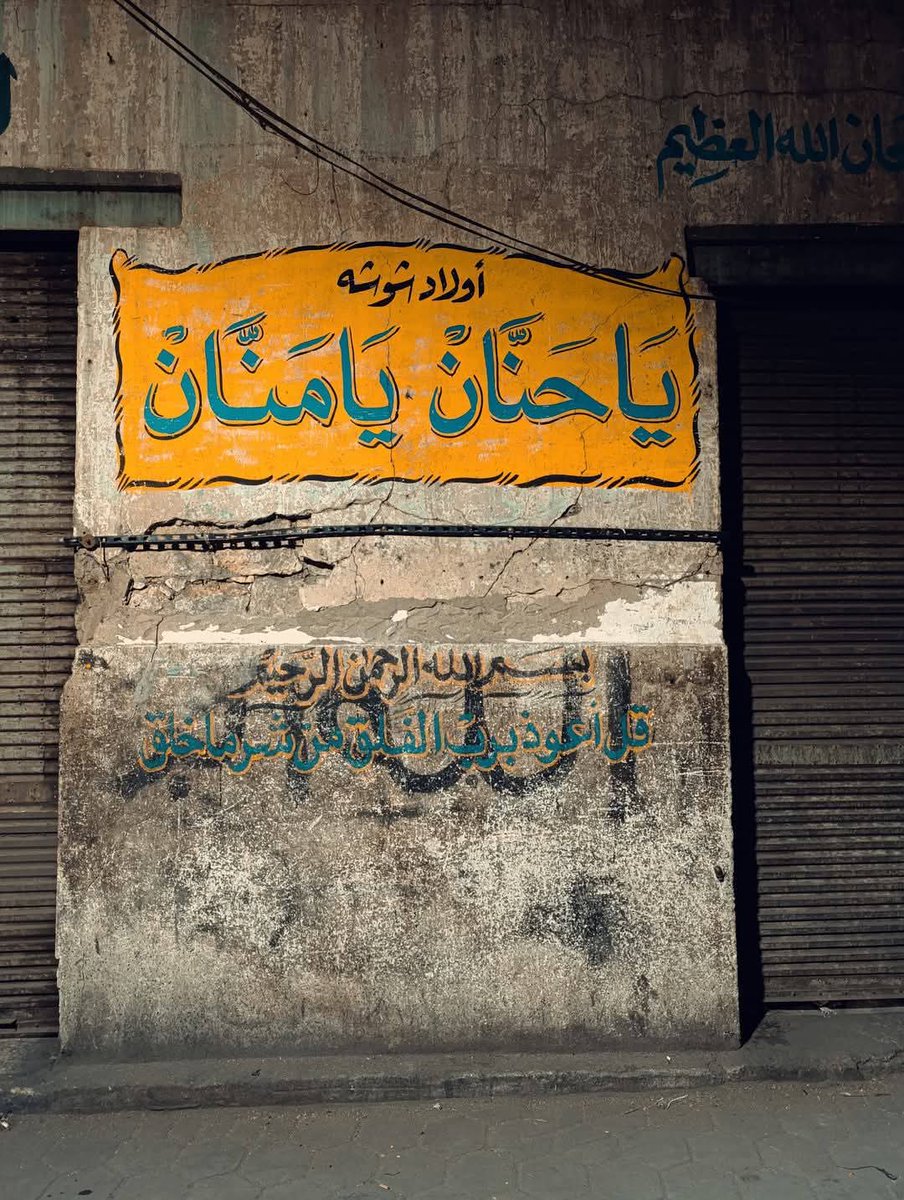 سبحان الله العظيم
أولاد شوشه
يَا حَنَّانْ يَا مَنَّانْ
بسم الله الرحمن الرحيم
قل أعوذ برب الفلق من شر ما خلق